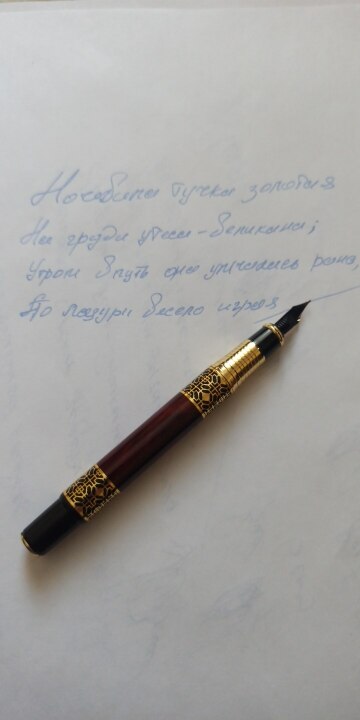 Ночевала тучка золотая
На груди утеса-великана;
Утром в путь она умчалась рано,
По лазури весело играя